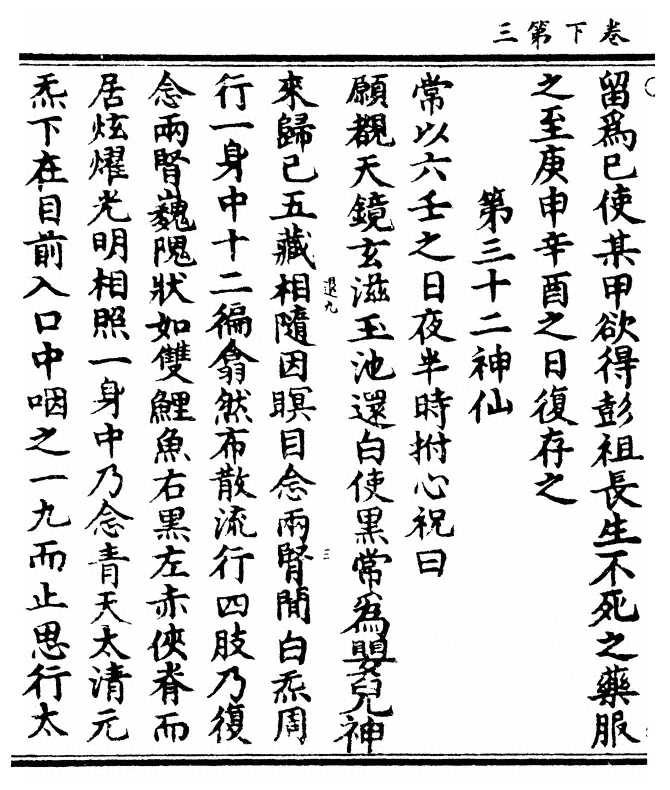 卷下第三
留爲已使某甲欲得彭祖長生不死之藥服
之至庚申辛酉之日復存之
第三十二神仙
常以六壬之日夜半時拊心祝曰
願覩天鏡玄滋玉池還白使黒常爲嬰兒神
來歸己五藏相隨因瞑目念兩腎間白炁周
行一身中十二徧翕然布散流行四肢乃復
念兩腎巍隗狀如雙鯉魚右黒左赤俠脊而
居炫燿光明相照一身中乃念青天太清元
炁下在目前入口中咽之一九而止思行太
退九
三